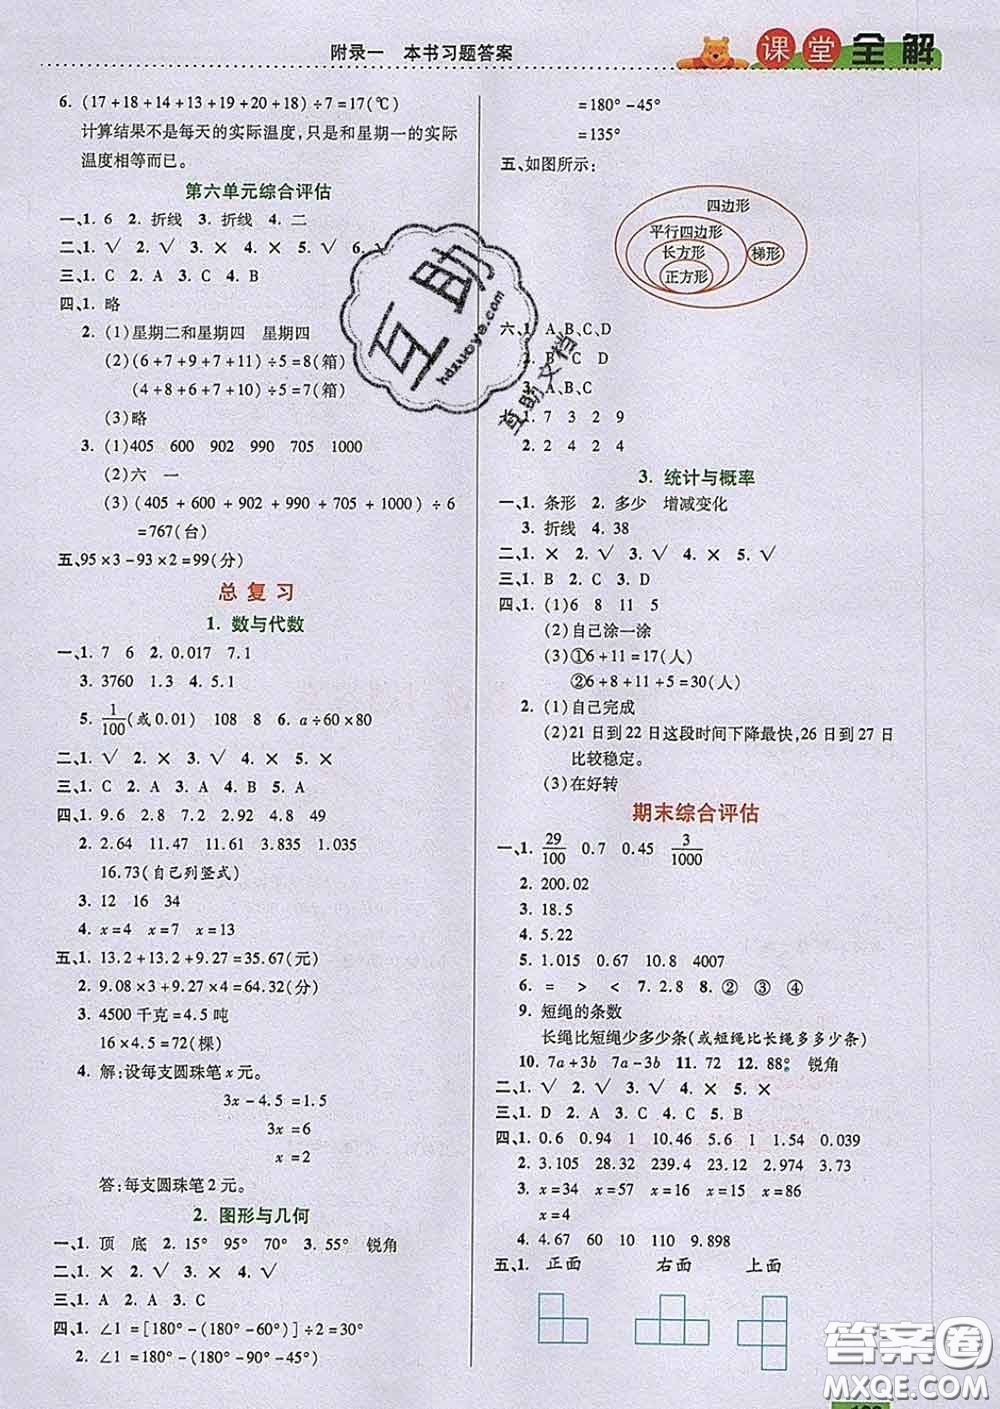 附录一　本书习题答案
课堂全解
6. (17+18+14+13+19+20+18)÷7=17(℃)
计算结果不是每天的实际温度,只是和星期一的实际
温度相等而已。
第六单元综合评估
一、1. 6  2. 折线  3. 折线  4. 二
二、1. √  2. √  3. ×  4. ×  5. √  6. √
三、1. C  2. A  3. C  4. B
四、1. 略
2. (1)星期二和星期四　星期四
(2)(6+7+9+7+11)÷5=8(箱)
(4+8+6+7+10)÷5=7(箱)
(3)略
3. (1)405  600  902  990  705  1000
(2)六　一
(3)(405+600+902+990+705+1000)÷6
=767(台)
五、95×3-93×2=99(分)
总复习
1. 数与代数
一、1. 7  6  2. 0.017  7.1
3. 3760  1.3  4. 5.1
5. 1/100(或0.01)  108  8  6. a÷60×80
二、1. √  2. ×  3. √  4. ×  5. ×
三、1. C  2. A  3. B  4. B  5. A
四、1. 9.6  2.8  7.2  8.4  4.8  49
2. 2.64  11.47  11.61  3.835  1.035
16.73(自己列竖式)
3. 12  16  34
4. x=4  x=7  x=13
五、1. 13.2+13.2+9.27=35.67(元)
2. 9.08×3+9.27×4=64.32(分)
3. 4500千克=4.5吨
16×4.5=72(棵)
4. 解:设每支圆珠笔x元。
3x-4.5=1.5
3x=6
x=2
答:每支圆珠笔2元。
2. 图形与几何
一、1. 顶　底  2. 15°  95°  70°  3. 55°  锐角
二、1. ×  2. √  3. ×  4. √
三、1. A  2. A  3. C
四、1. ∠1=[180°-(180°-60°)]÷2=30°
2. ∠1=180°-(180°-90°-45°)
=180°-45°
=135°
五、如图所示:
四边形
平行四边形
长方形
正方形
梯形
六、1. A、B、C、D
2. B  C  D
3. A、B、C
1. 7  3  2  9
2. 2  4  2  4
3. 统计与概率
一、1. 条形  2. 多少　增减变化
3. 折线  4. 38
二、1. ×  2. √  3. √  4. ×  5. √
三、1. B  2. C  3. D
四、1. (1)6  8  11  5
(2)自己涂一涂
(3)①6+11=17(人)
②6+8+11+5=30(人)
2. (1)自己完成
(2)21日到22日这段时间下降最快,26日到27日
比较稳定。
(3)在好转
期末综合评估
一、1. 29/100  0.7  0.45  3/1000
2. 200.02
3. 18.5
4. 5.22
5. 1.015  0.67  10.8  4007
6. =  >  <  7. 2.8  8. ②  ③  ④
9. 短绳的条数
长绳比短绳少多少条(或短绳比长绳多多少条)
10. 7a+3b  7a-3b  11. 72  12. 88°  锐角
二、1. √  2. √  3. √  4. ×  5. ×
三、1. D  2. A  3. C  4. C  5. B
四、1. 0.6  0.94  1  10.46  5.6  1  1.54  0.039
2. 3.105  28.32  239.4  23.12  2.974  13.85
3. x=34  x=57  x=15  x=17  x=86
x=4
4. 4.67  60  10  110  9.898
五、1. 正面　右面　上面
互助
hdzuoye.com
互助文档
答案圈
MXQE.COM